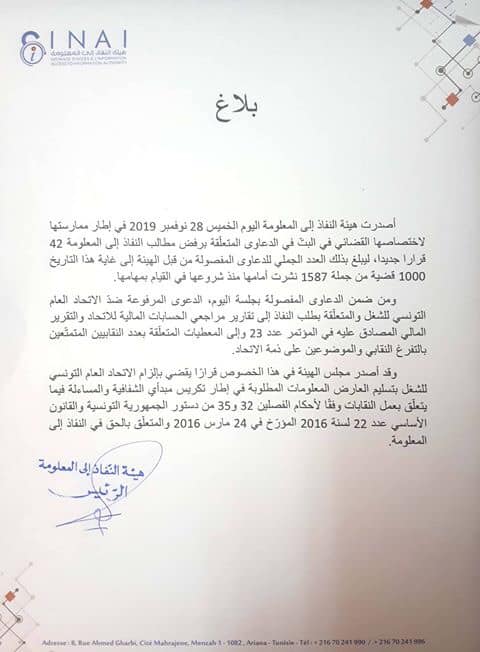 INAI
هيئة النفاذ إلى المعلومة
INSTANCE D'ACCES A L'INFORMATION
ACCESS TO INFORMATION AUTHORITY
بلاغ
أصدرت هيئة النفاذ إلى المعلومة اليوم الخميس 28 نوفمبر 2019 في إطار ممارستها
لاختصاصها القضائي في البتّ في الدعاوى المتعلّقة برفض مطالب النفاذ إلى المعلومة 42
قرارا جديدا، ليبلغ بذلك العدد الجملي للدعاوى المفصولة من قبل الهيئة إلى غاية هذا التاريخ
1000 قضية من جملة 1587 نشرت أمامها منذ شروعها في القيام بمهامها.
ومن ضمن الدعاوى المفصولة بجلسة اليوم، الدعوى المرفوعة ضدّ الاتحاد العام
التونسي للشغل والمتعلّقة بطلب النفاذ إلى تقارير مراجعي الحسابات المالية للاتحاد والتقرير
المالي المصادق عليه في المؤتمر عدد 23 وإلى المعطيات المتعلّقة بعدد النقابيين المتمتّعين
بالتفرغ النقابي والموضوعين على ذمة الاتحاد.
وقد أصدر مجلس الهيئة في هذا الخصوص قرارًا يقضي بإلزام الاتحاد العام التونسي
للشغل بتسليم العارض المعلومات المطلوبة في إطار تكريس مبدأي الشفافية والمساءلة فيما
يتعلّق بعمل النقابات وفقًا لأحكام الفصلين 32 و35 من دستور الجمهورية التونسية والقانون
الأساسي عدد 22 لسنة 2016 المؤرّخ في 24 مارس 2016 والمتعلّق بالحق في النفاذ إلى
المعلومة.
هيئة النّفاذ إلى المعلومة
الرّئيس
Adresse : 8, Rue Ahmed Gharbi, Cité Mahrajene, Menzah 1 - 1082 , Ariana - Tunisie - Tél : + 216 70 241 990 / + 216 70 241 986